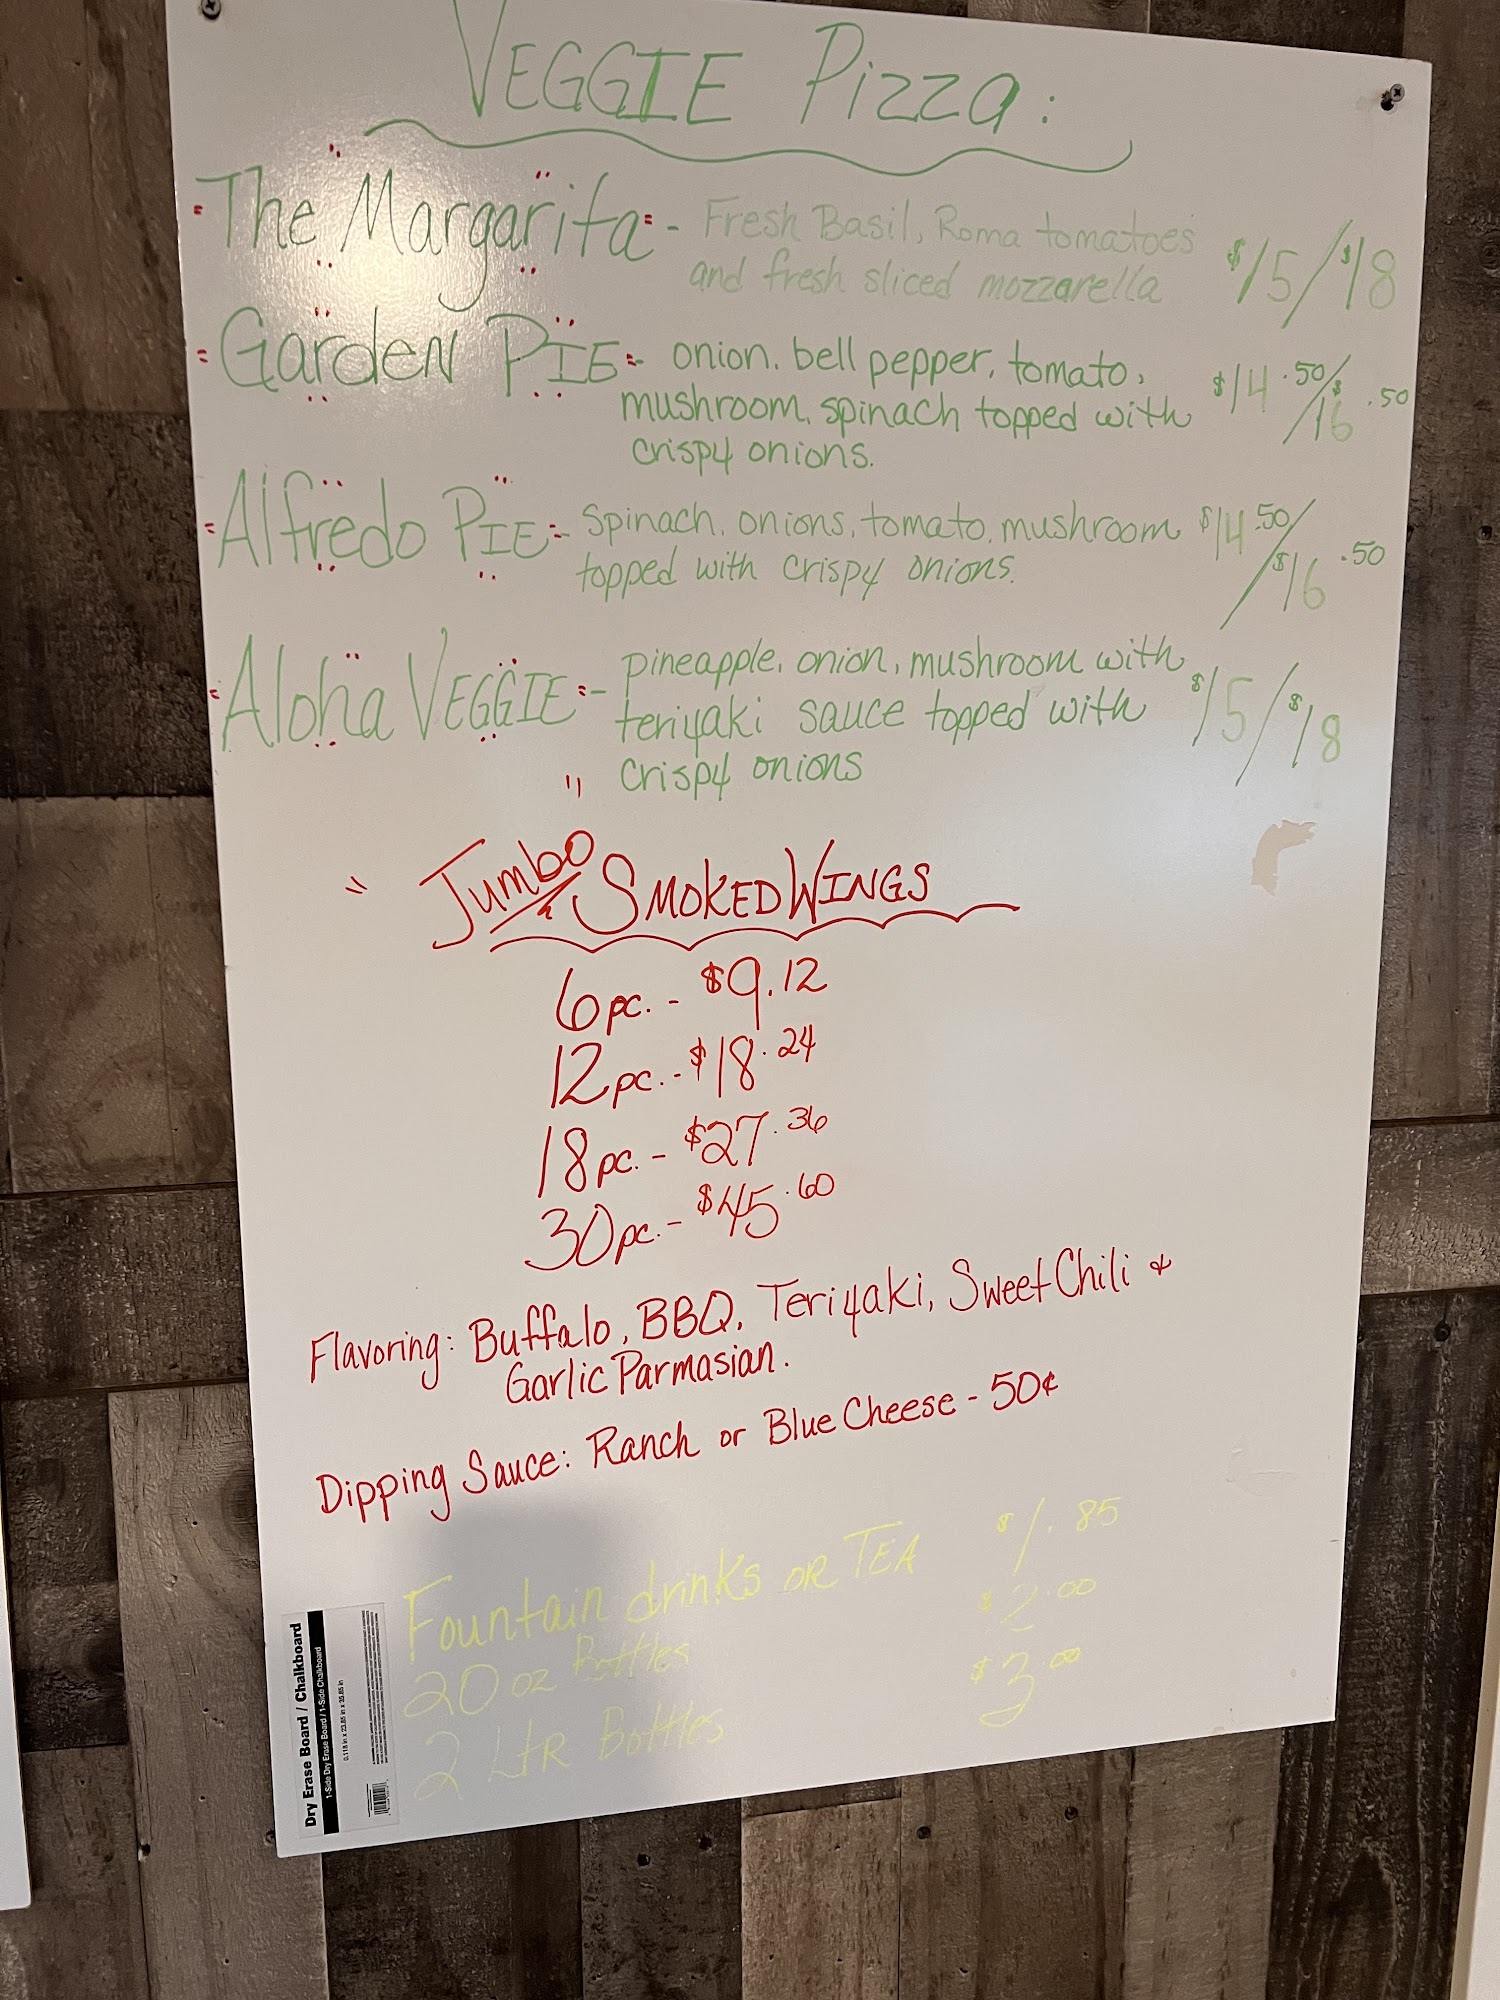 VEGGIE Pizza:
The Margarita - Fresh Basil, Roma tomatoes
and fresh sliced mozzarella $15/$18
Garden PIE - onion, bell pepper, tomato, $14.50/$16.50
mushroom, spinach topped with
crispy onions.
Alfredo PIE - Spinach, onions, tomato, mushroom $14.50/$16.50
topped with crispy onions.
Aloha VEGGIE - pineapple, onion, mushroom with $15/$18
teriyaki sauce topped with
crispy onions
" Jumbo " SMOKED WINGS
6pc. - $9.12
12pc. - $18.24
18pc. - $27.36
30pc. - $45.60
Flavoring: Buffalo, BBQ, Teriyaki, Sweet Chili &
Garlic Parmasian.
Dipping Sauce: Ranch or Blue Cheese - 50¢
Fountain drinks OR TEA $1.85
20 oz Bottles $2.00
2 LtR Bottles $3.00
Dry Erase Board / Chalkboard
1-Side Dry Erase Board / 1-Side Chalkboard